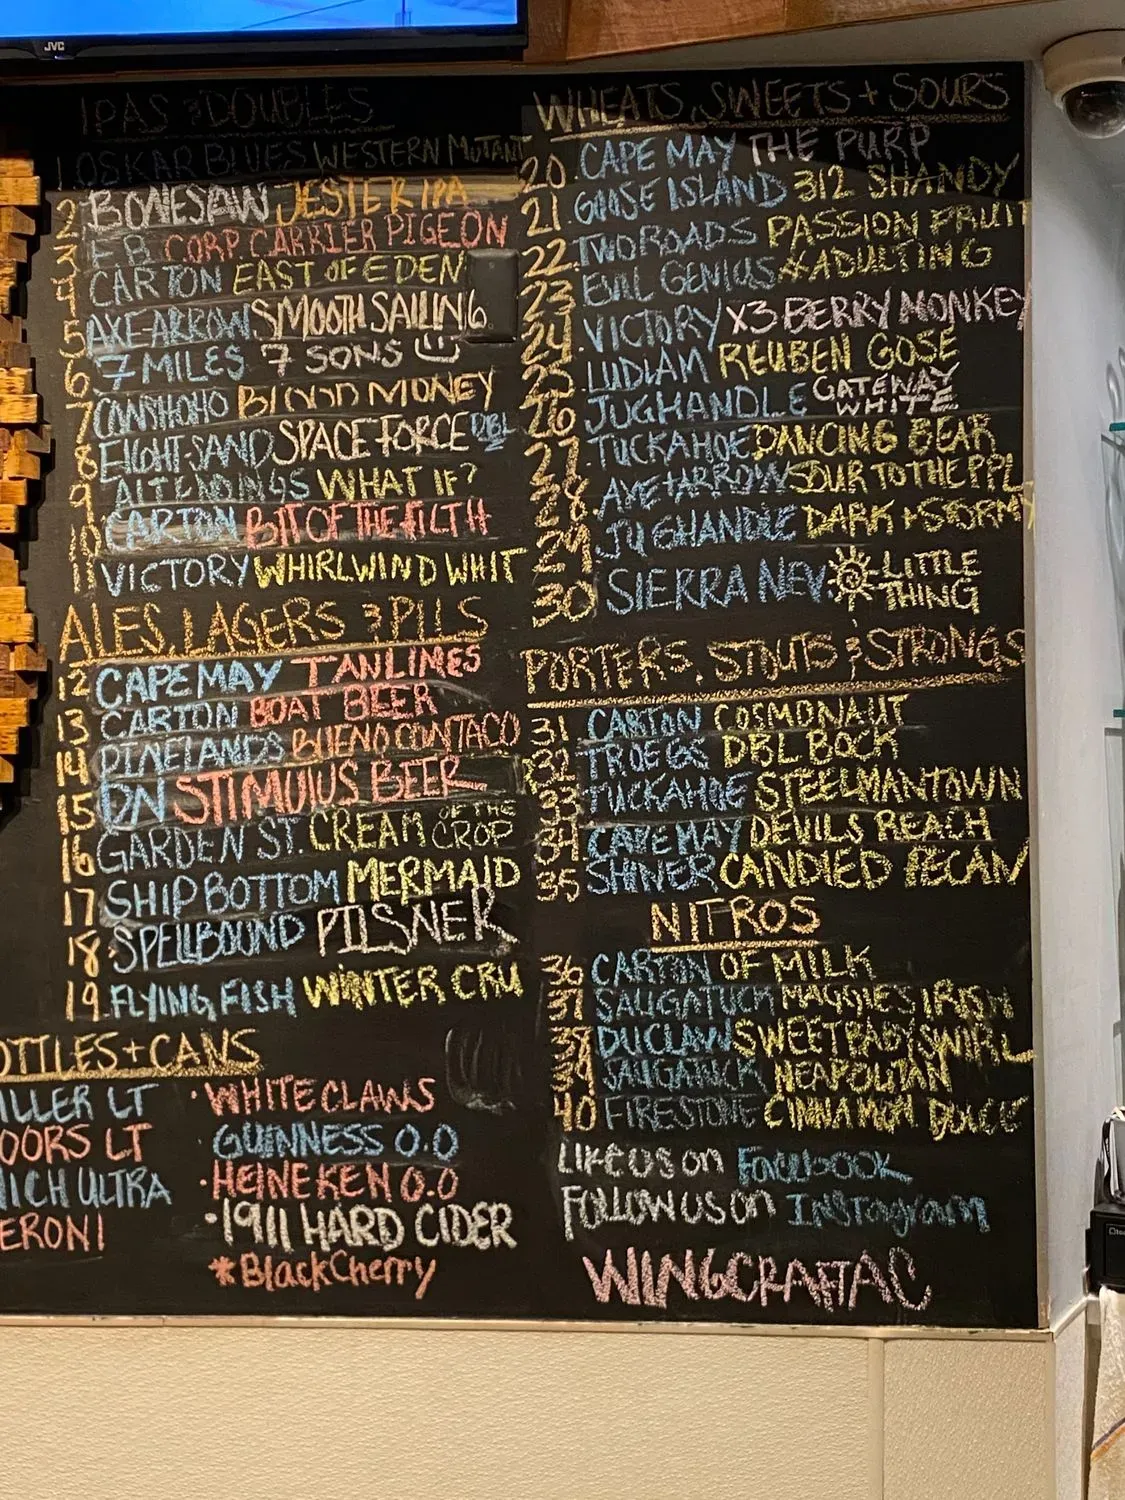 JVC
IPAS & DOUBLES
1. OSKAR BLUES WESTERN MUTANT
2 BONESAW JESTER IPA
3 E.B. CORP. CARRIER PIGEON
4 CARTON EAST OF EDEN
5 AXE+ARROW SMOOTH SAILING
6 7 MILES 7 SONS
7 BLOOD MONEY
8 EIGHT+SAND SPACE FORCE DBL
9 ALT ENDINGS WHAT IF?
10 CARTON BIT OF THE FILTH
11 VICTORY WHIRLWIND WHIT
ALES, LAGERS & PILS
12 CAPE MAY TANLINES
13 CARTON BOAT BEER
14 PINELANDS BUENO CONTACO
15 DN STIMULUS BEER
16 GARDEN ST. CREAM OF THE CROP
17 SHIP BOTTOM MERMAID
18 SPELLBOUND PILSNER
19 FLYING FISH WINTER CRU
OTTLES + CANS
ILLER LT
OORS LT
ICH ULTRA
ERONI
· WHITE CLAWS
· GUINNESS 0.0
· HEINEKEN 0.0
· 1911 HARD CIDER
* Black Cherry
WHEATS, SWEETS + SOURS
20. CAPE MAY THE PURP
21. GOOSE ISLAND 312 SHANDY
22. TWO ROADS PASSION FRUIT
23 EVIL GENIUS #ADULTING
24. VICTORY X3 BERRY MONKEY
25. LUDLAM REUBEN GOSE
26 JUGHANDLE GATEWAY WHITE
27. TUCKAHOE DANCING BEAR
28. AXE+ARROW SOUR TO THE PPL
29. JUGHANDLE DARK + STORMY
30 SIERRA NEV. LITTLE THING
PORTERS, STOUTS & STRONGS
31 CARTON COSMONAUT
32 TROEGS DBL BOCK
33 TUCKAHOE STEELMANTOWN
34. CAPE MAY DEVILS REACH
35 SHINER CANDIED PECAN
NITROS
36 CARTON OF MILK
37 SAUGATUCK MAGGIES IRISH
38 DUCLAW SWEET BABY SWIRL
39 SAUGATUCK NEAPOLITAN
40 FIRESTONE CINNAMON DOLCE
LIKE US ON Facebook
FOLLOW US ON INSTagram
WINGCRAFTAC